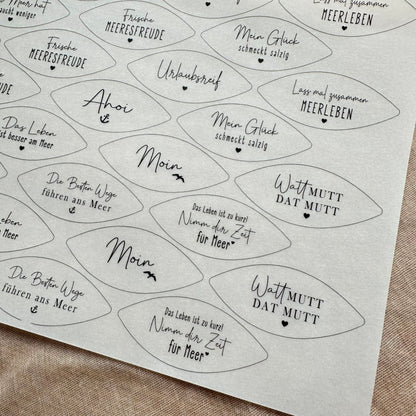 Meer hat
braucht weniger
Frische
MEERESFREUDE
Mein Glück
schmeckt salzig
Lass mal zusammen
MEERLEBEN
Frische
MEERESFREUDE
Urlaubsreif
Lass mal zusammen
MEERLEBEN
Ahoi
Mein Glück
schmeckt salzig
Das Leben
ist besser am Meer
Moin
WattMUTT
DAT MUTT
Die Besten Wege
führen ans Meer
Das Leben ist zu kurz!
Nimm dir Zeit
für Meer
Leben
am Meer
Moin
WattMUTT
DAT MUTT
Die Besten Wege
führen ans Meer
Das Leben ist zu kurz!
Nimm dir Zeit
für Meer